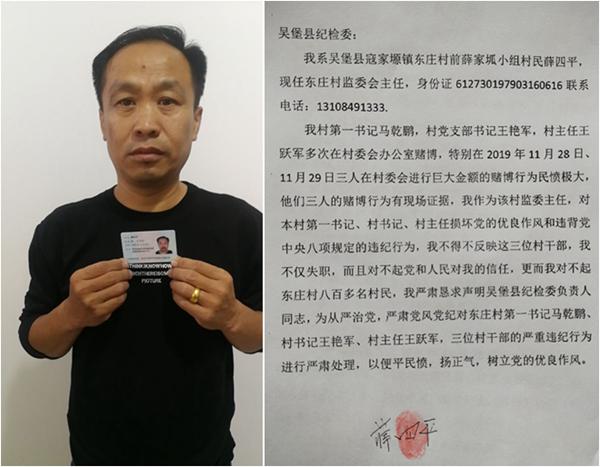 THINK:KNOWHOW
PICTURE
吴堡县纪检委：
我系吴堡县寇家塬镇东庄村前薛家坬小组村民薛四平，
现任东庄村监委会主任，身份证 612730197903160616 联系
电话：13108491333.
我村第一书记马乾鹏，村党支部书记王艳军，村主任王
跃军多次在村委会办公室赌博，特别在 2019 年 11 月 28 日、
11 月 29 日三人在村委会进行巨大金额的赌博行为民愤极大，
他们三人的赌博行为有现场证据，我作为该村监委主任，对
本村第一书记、村书记、村主任损坏党的优良作风和违背党
中央八项规定的违纪行为，我不得不反映这三位村干部，我
不仅失职，而且对不起党和人民对我的信任，更而我对不起
东庄村八百多名村民，我严肃恳求声明吴堡县纪检委负责人
同志，为从严治党，严肃党风党纪对东庄村第一书记马乾鹏、
村书记王艳军、村主任王跃军，三位村干部的严重违纪行为
进行严肃处理，以便平民愤，扬正气，树立党的优良作风。
薛四平